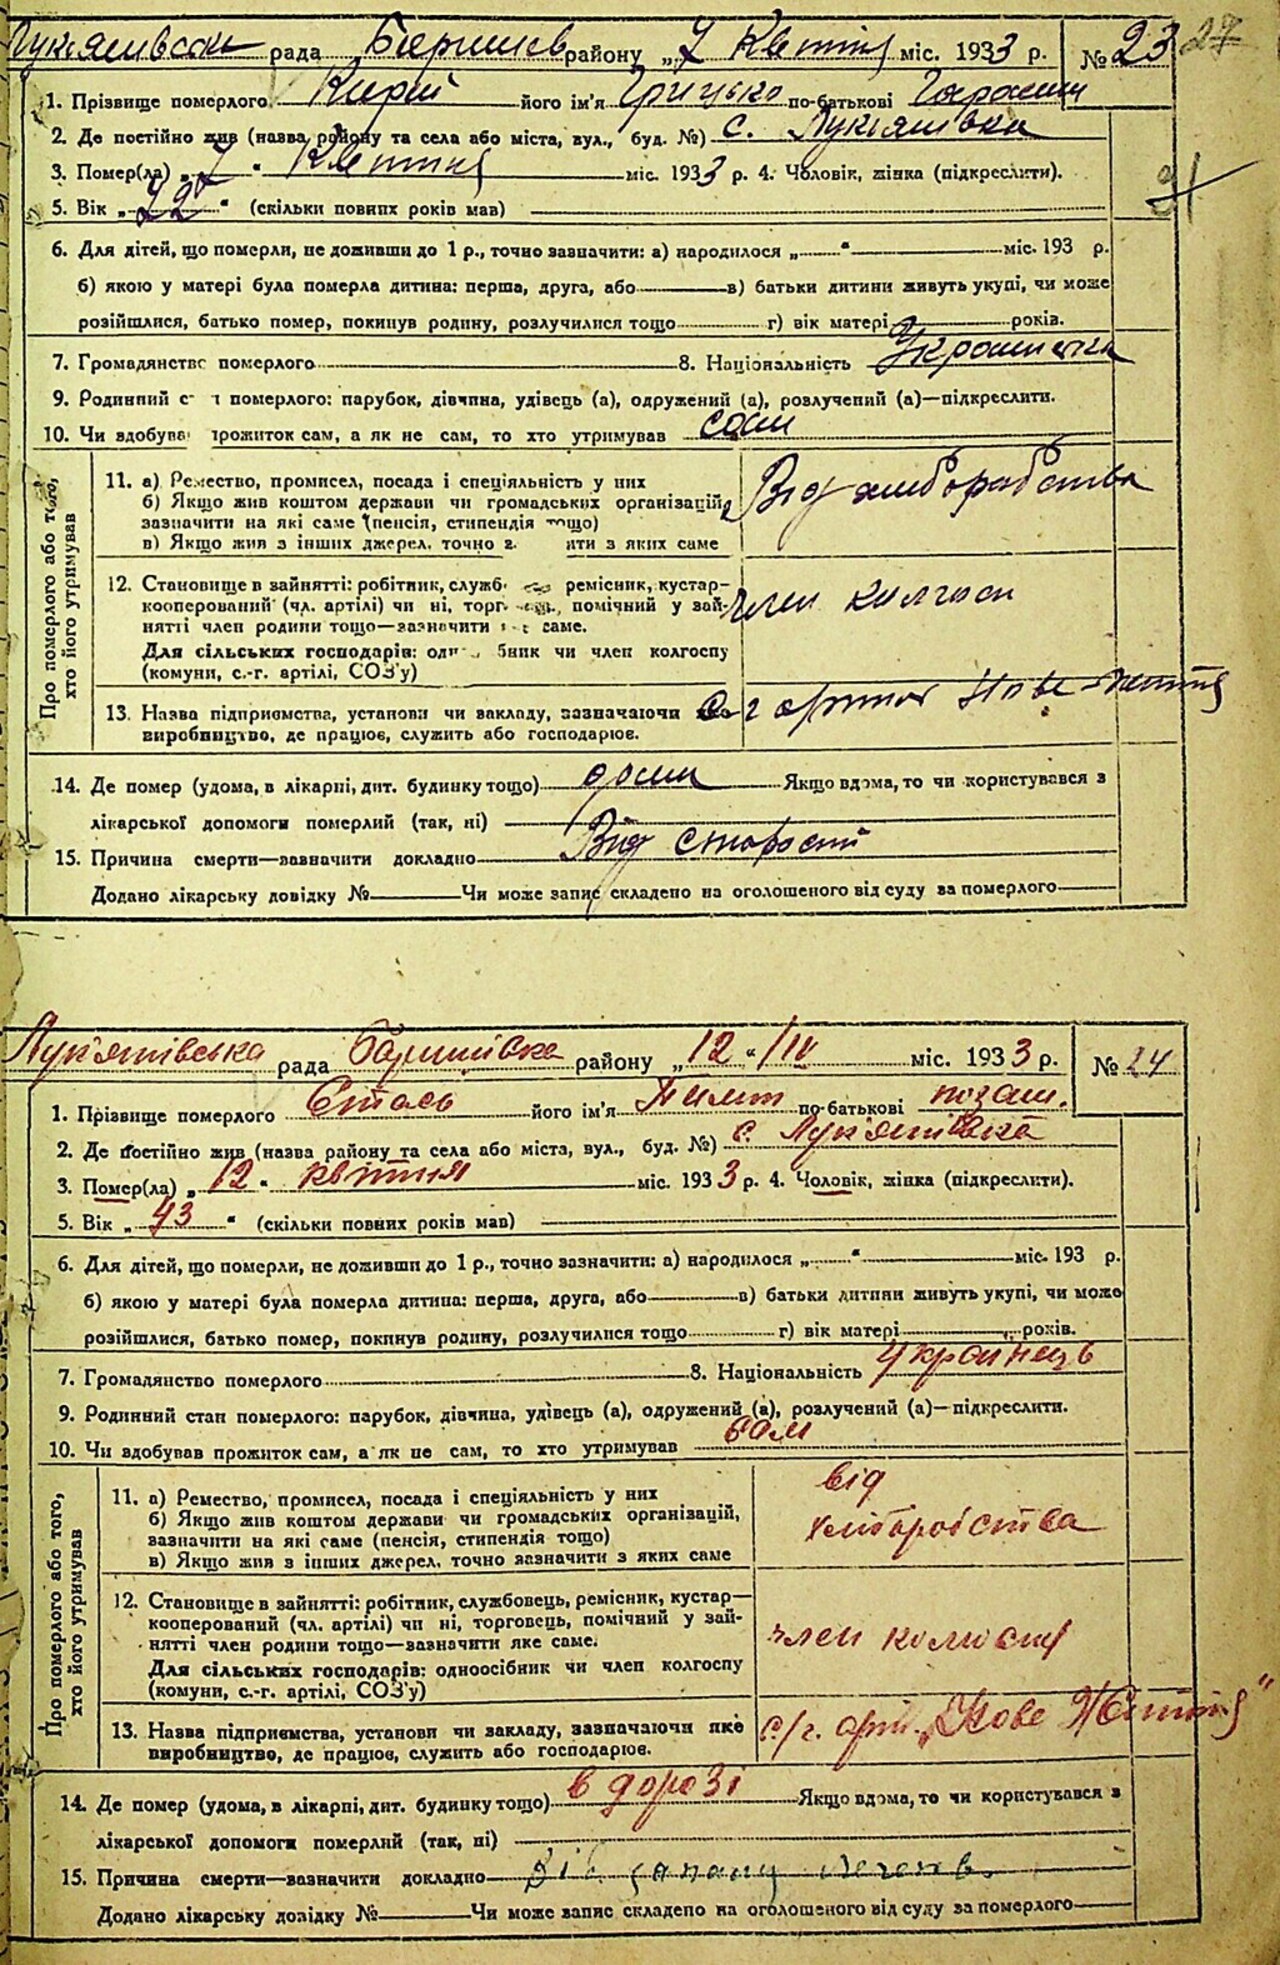 Лукяшвсак рада Баришев району „7 Квітня міс. 1933 р. № 23 27
1. Прізвище померлого Кирій його ім'я Грицько по-батькові Гарасим
2. Де постійно жив (назва району та села або міста, вул., буд. №) с. Лукяшівка
3. Помер(ла) „7“ Квітня міс. 1933 р. 4. Чоловік, жінка (підкреслити).
5. Вік „72“ (скільки повних років мав)
31
6. Для дітей, що померли, не доживши до 1 р., точно зазначити: а) народилося „ “ міс. 193 р.
б) якою у матері була померла дитина: перша, друга, або в) батьки дитини живуть укупі, чи може
розійшлися, батько помер, покинув родину, розлучилися тощо г) вік матері років.
7. Громадянство померлого 8. Національність
9. Родинний с н померлого: парубок, дівчина, удівець (а), одружений (а), розлучений (а)—підкреслити.
10. Чи здобува прожиток сам, а як не сам, то хто утримував сам
Про померлого або того, хто його утримував
11. а) Ремество, промисел, посада і спеціяльність у них
б) Якщо жив коштом держави чи громадських організацій,
зазначити на які саме (пенсія, стипендія тощо)
в) Якщо жив з інших джерел, точно з ити з яких саме
Від хліборобства
12. Становище в зайнятті: робітник, служб ремісник, кустар—
кооперований (чл. артілі) чи ні, торг помічний у зай-
нятті член родини тощо—зазначити саме.
Для сільських господарів: од бник чи член колгоспу
(комуни, с.-г. артілі, СОЗ'у)
член
13. Назва підприємства, установи чи закладу, зазначаючи яке
виробництво, де працює, служить або господарює.
С-г артіль Нове-життя
14. Де помер (удома, в лікарні, дит. будинку тощо) дома Якщо вдома, то чи користувався з
лікарської допомоги померлий (так, ні)
15. Причина смерти—зазначити докладно Від старости
Додано лікарську довідку № Чи може запис складено на оголошеного від суду за померлого
Лук'яшівська рада Баришівка району „12“ /IV міс. 1933 р. № 24
1. Прізвище померлого його ім'я Пилип по-батькові позаш.
2. Де постійно жив (назва району та села або міста, вул., буд. №) с. Лук'яшівка
3. Помер(ла) „12“ квітня міс. 1933 р. 4. Чоловік, жінка (підкреслити).
5. Вік „43“ (скільки повних років мав)
6. Для дітей, що померли, не доживши до 1 р., точно зазначити: а) народилося „ “ міс. 193 р.
б) якою у матері була померла дитина: перша, друга, або в) батьки дитини живуть укупі, чи може
розійшлися, батько помер, покинув родину, розлучилися тощо г) вік матері років.
7. Громадянство померлого 8. Національність українець
9. Родинний стан померлого: парубок, дівчина, удівець (а), одружений (а), розлучений (а)—підкреслити.
10. Чи здобував прожиток сам, а як не сам, то хто утримував сам
Про померлого або того, хто його утримував
11. а) Ремество, промисел, посада і спеціяльність у них
б) Якщо жив коштом держави чи громадських організацій,
зазначити на які саме (пенсія, стипендія тощо)
в) Якщо жив з інших джерел, точно зазначити з яких саме
від
хліборобства
12. Становище в зайнятті: робітник, службовець, ремісник, кустар—
кооперований (чл. артілі) чи ні, торговець, помічний у зай-
нятті член родини тощо—зазначити яке саме.
Для сільських господарів: одноосібник чи член колгоспу
(комуни, с.-г. артілі, СОЗ'у)
член колгоспу
13. Назва підприємства, установи чи закладу, зазначаючи яке
виробництво, де працює, служить або господарює.
с/г. арт. „Нове Життя“
14. Де помер (удома, в лікарні, дит. будинку тощо) в дорозі Якщо вдома, то чи користувався з
лікарської допомоги померлий (так, ні)
15. Причина смерти—зазначити докладно
Додано лікарську довідку № Чи може запис складено на оголошеного від суду за померлого